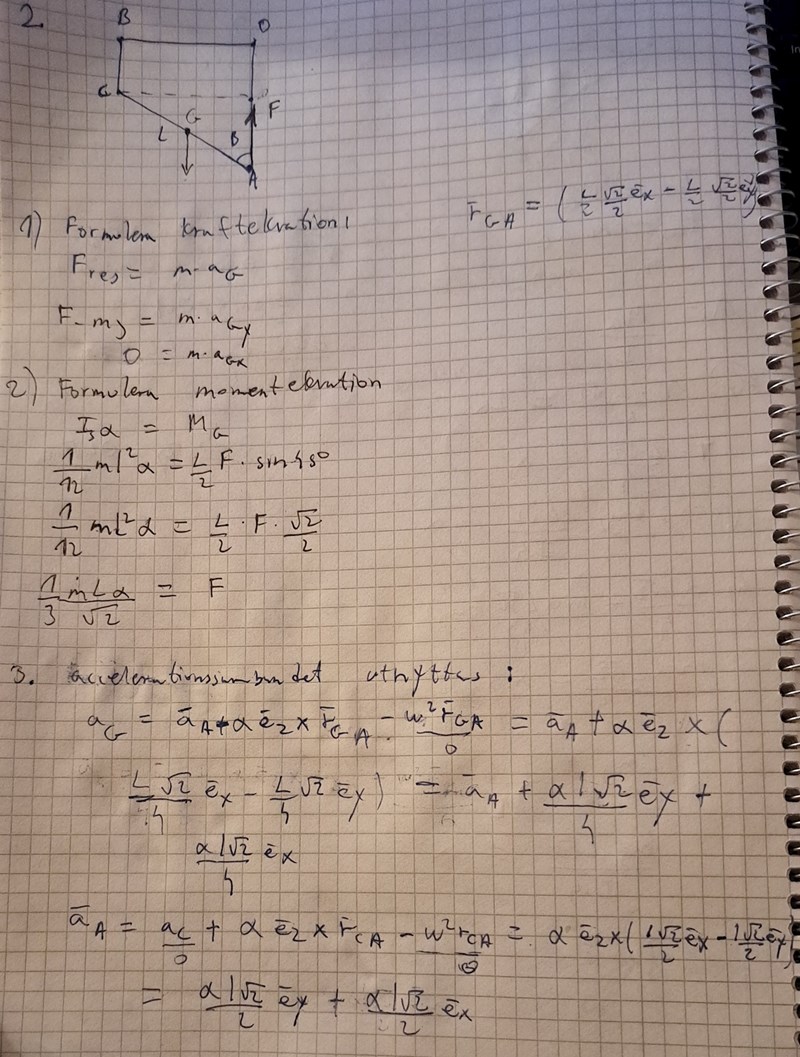 2.
B
O
C
F
G
L
B
A
r̄_GA = (L/2 √2/2 ē_x - L/2 √2/2 ē_y)
1) Formulera kraftekvation:
F_res = m·a_G
F-mg = m·a_Gy
0 = m·a_Gx
2) Formulera momentekvation
I_G α = M_G
1/12 ml²α = L/2 F·sin45°
1/12 mL²α = L/2 · F · √2/2
1/3 mLα/√2 = F
3. accelerationssambandet utnyttas:
a_G = ā_A + α ē_z × r̄_GA - ω² r̄_GA = ā_A + α ē_z × (
0
L√2/4 ē_x - L/4 √2 ē_y) = ā_A + αl√2/4 ē_y +
αl√2/4 ē_x
ā_A = a_C + α ē_z × r̄_CA - ω² r_CA = α ē_z × (l√2/2 ē_x - l√2/2 ē_y)
0 0
= αl√2/2 ē_y + αl√2/2 ē_x